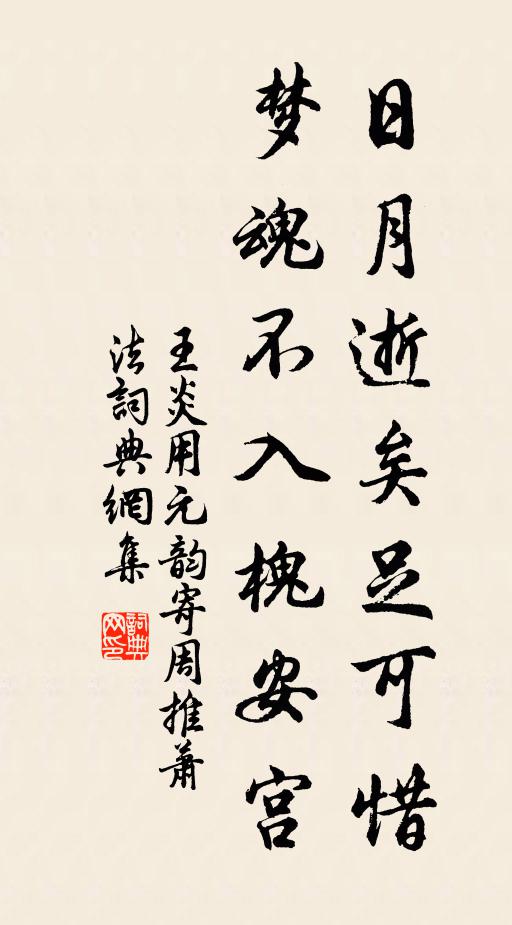 日月逝矣足可惜
梦魂不入槐安宫
王炎用元韵寄周推萧
法詞典網集
詞典网印